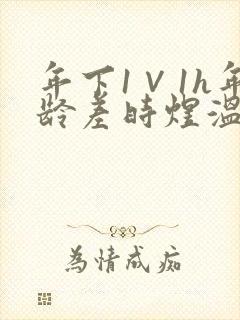 年下1V1h年
龄差时煌温
為情成痴